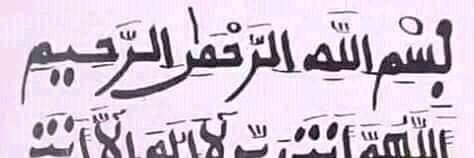 بِسْمِ اللَّهِ الرَّحْمَٰنِ الرَّحِيمِ
اللَّهُمَّ أَنْتَ رَبِّي لَا إِلَهَ إِلَّا أَنْتَ